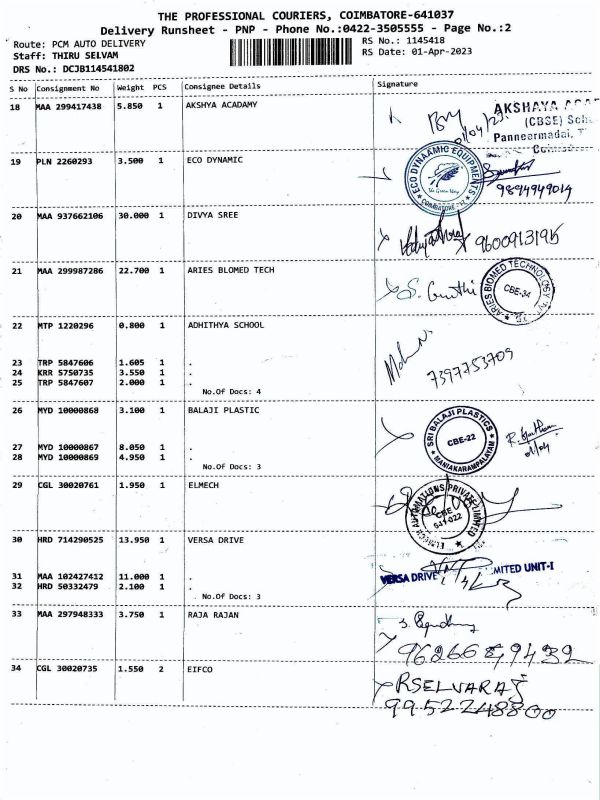 THE PROFESSIONAL COURIERS, COIMBATORE-641037
Delivery Runsheet - PNP - Phone No.:0422-3505555 - Page No.:2
Route: PCM AUTO DELIVERY
RS No.: 1145418
Staff: THIRU SELVAM
RS Date: 01-Apr-2023
DRS No.: DCJB114541802
S No Consignment No Weight PCS Consignee Details Signature
18 MAA 299417438 5.850 1 AKSHYA ACADAMY
AKSHAYA
(CBSE)
Panneermadai,
19 PLN 2260293 3.500 1 ECO DYNAMIC
ECO DYNAAMIC EQUIPMENTS
The Green Way
COIMBATORE
9894949019
20 MAA 937662106 30.000 1 DIVYA SREE
9600913195
21 MAA 299987286 22.700 1 ARIES BLOMED TECH
ARIES BIOMED TECHNOLOGY
CBE-34
22 MTP 1220296 0.800 1 ADHITHYA SCHOOL
7397753709
23 TRP 5847606 1.605 1 .
24 KRR 5750735 3.550 1 .
25 TRP 5847607 2.000 1 .
No.Of Docs: 4
26 MYD 10000868 3.100 1 BALAJI PLASTIC
SRI BALAJI PLASTICS
CBE-22
MANIAKARAMPALAYAM
27 MYD 10000867 8.050 1 .
28 MYD 10000869 4.950 1 .
No.Of Docs: 3
29 CGL 30020761 1.950 1 ELMECH
AUTOMATIONS PRIVATE LIMITED
CBE
641-022
30 HRD 714290525 13.950 1 VERSA DRIVE
VERSA DRIVE MITED UNIT-I
31 MAA 102427412 11.000 1 .
32 HRD 50332479 2.100 1 .
No.Of Docs: 3
33 MAA 297948333 3.750 1 RAJA RAJAN
9626689432
34 CGL 30020735 1.550 2 EIFCO
RSELVARAJ
9952248800